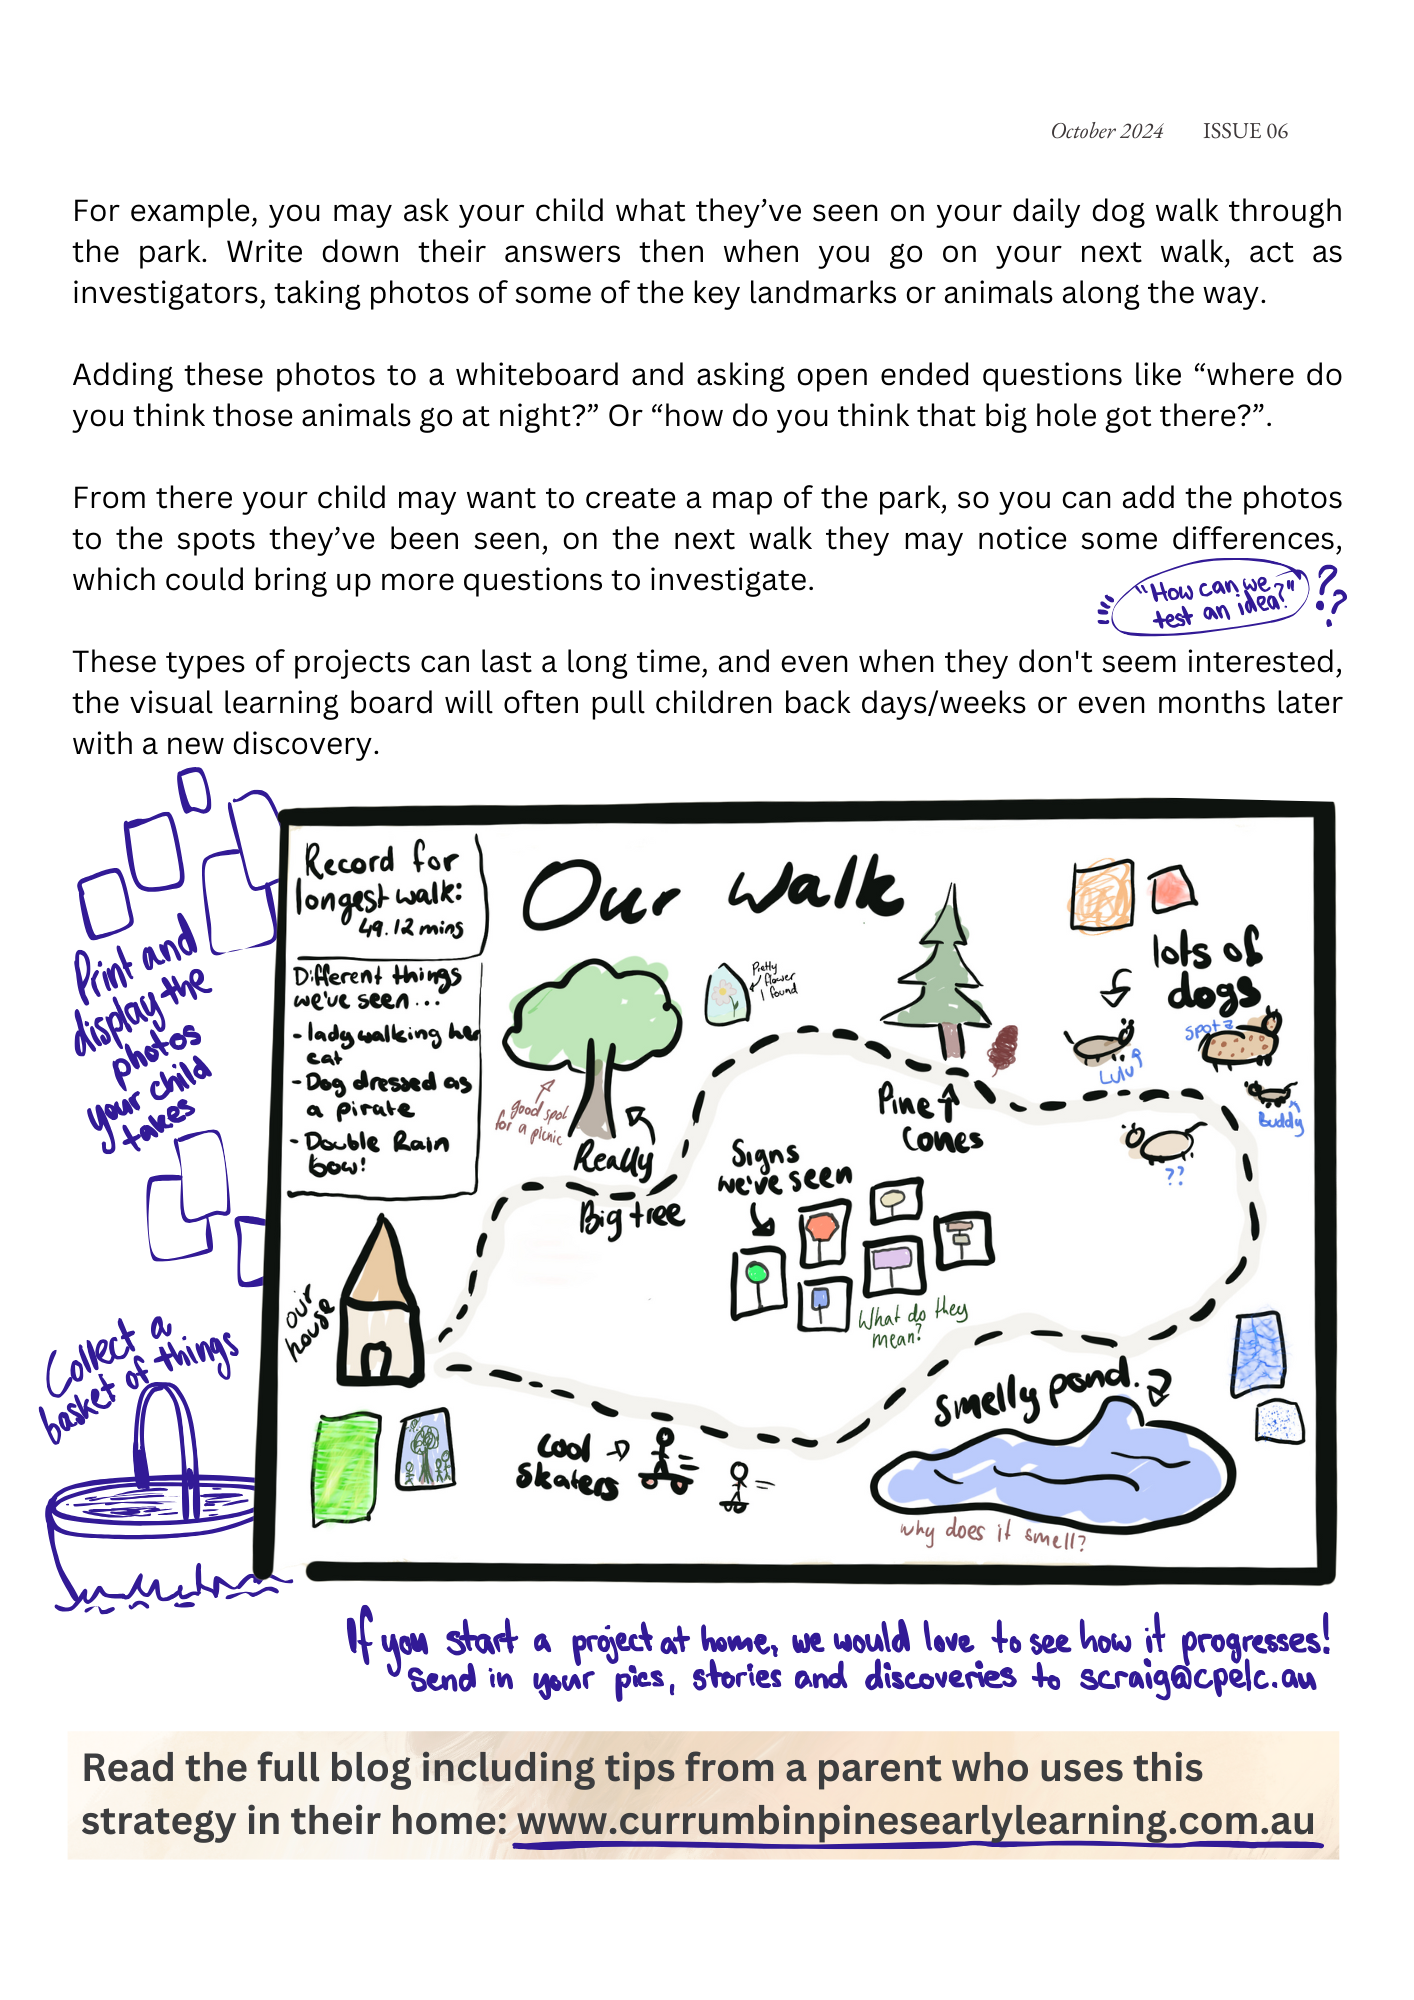 October 2024 ISSUE 06
For example, you may ask your child what they’ve seen on your daily dog walk through
the park. Write down their answers then when you go on your next walk, act as
investigators, taking photos of some of the key landmarks or animals along the way.
Adding these photos to a whiteboard and asking open ended questions like “where do
you think those animals go at night?” Or “how do you think that big hole got there?”.
From there your child may want to create a map of the park, so you can add the photos
to the spots they’ve been seen, on the next walk they may notice some differences,
which could bring up more questions to investigate.
"How can we
test an idea?"
??
These types of projects can last a long time, and even when they don't seem interested,
the visual learning board will often pull children back days/weeks or even months later
with a new discovery.
Print and
display the
photos
your child
takes
Collect a
basket of things
Record for
longest walk:
49.12 mins
Different things
we've seen...
- lady walking her
cat
- Dog dressed as
a pirate
- Double Rain
bow!
Our walk
Pretty
flower
I found
good spot
for a picnic
Really
Big tree
Pine
Cones
lots of
dogs
Spotz
Lulu
Buddy
??
Signs
we've seen
What do they
mean?
our
house
Cool
Skaters
Smelly pond.
why does it smell?
If you start a project at home, we would love to see how it progresses!
Send in your pics, stories and discoveries to scraig@cpelc.au
Read the full blog including tips from a parent who uses this
strategy in their home: www.currumbinpinesearlylearning.com.au